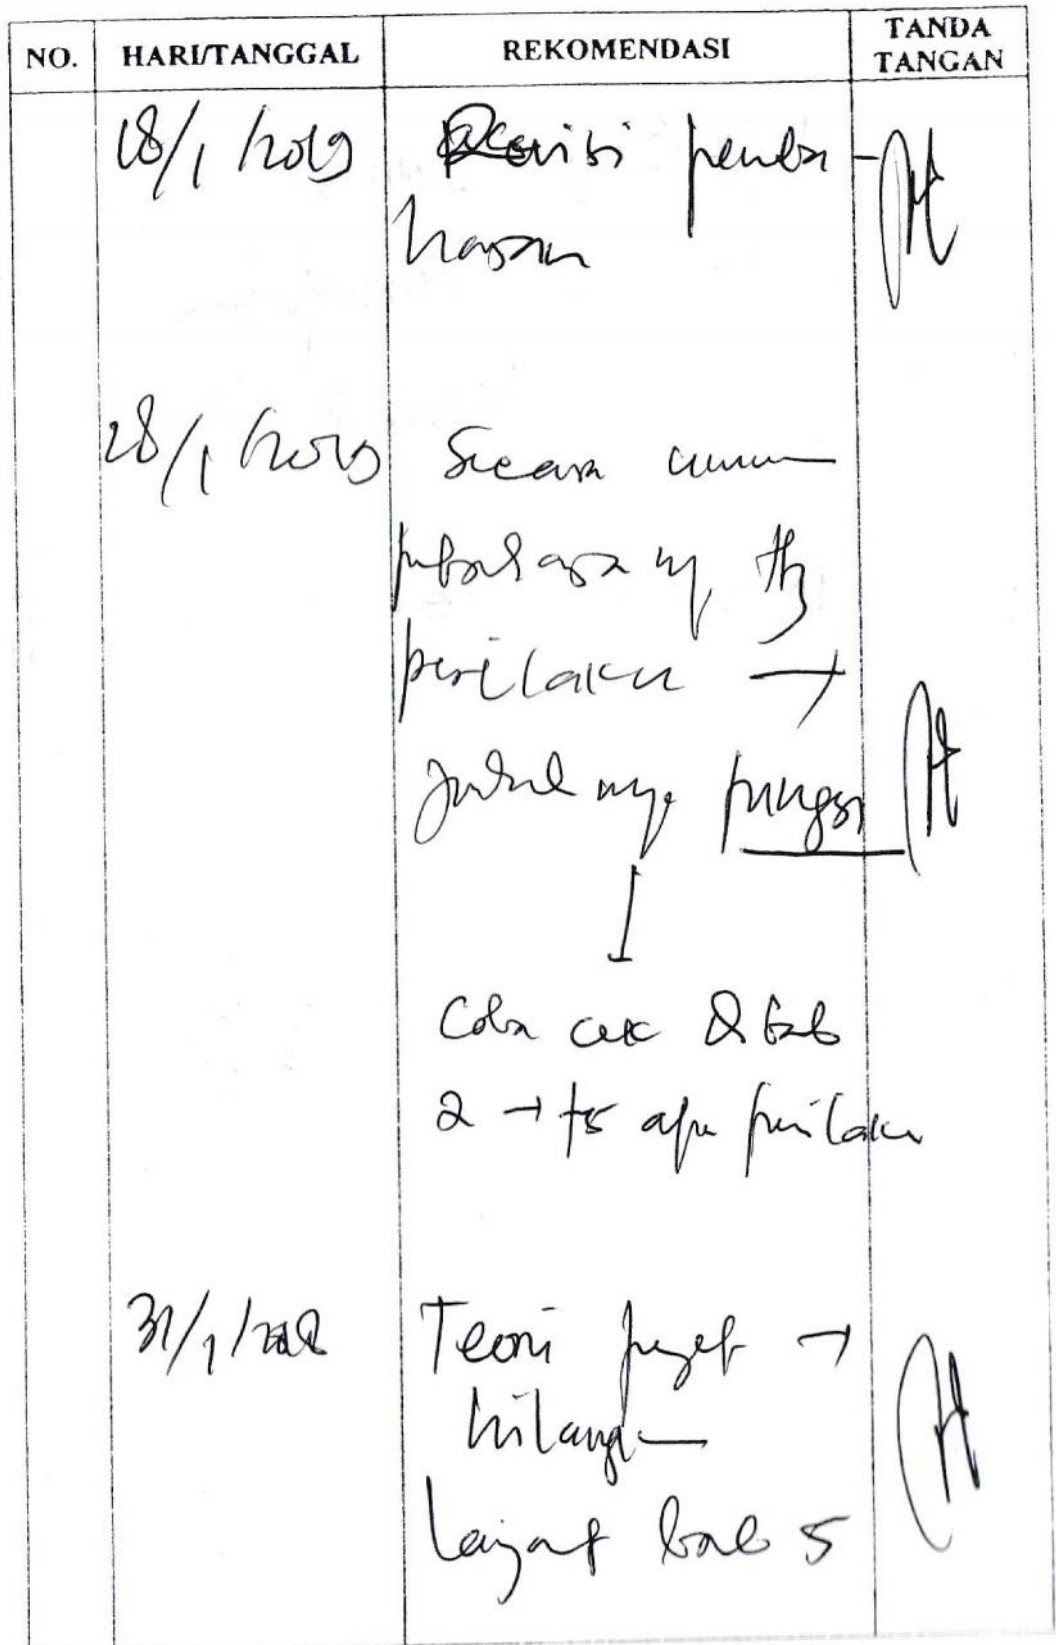 NO. HARI/TANGGAL REKOMENDASI TANDA TANGAN
18/1/2019 Revisi pemba-
hasan
28/1/2019 Secara umum
pebahasan ny ttg
perilaku →
judul nya fungsi
↓
Coba cek di bab
2 → ttg apa perilaku
31/1/ Teori →
hilangkan
Lanjut bab 5